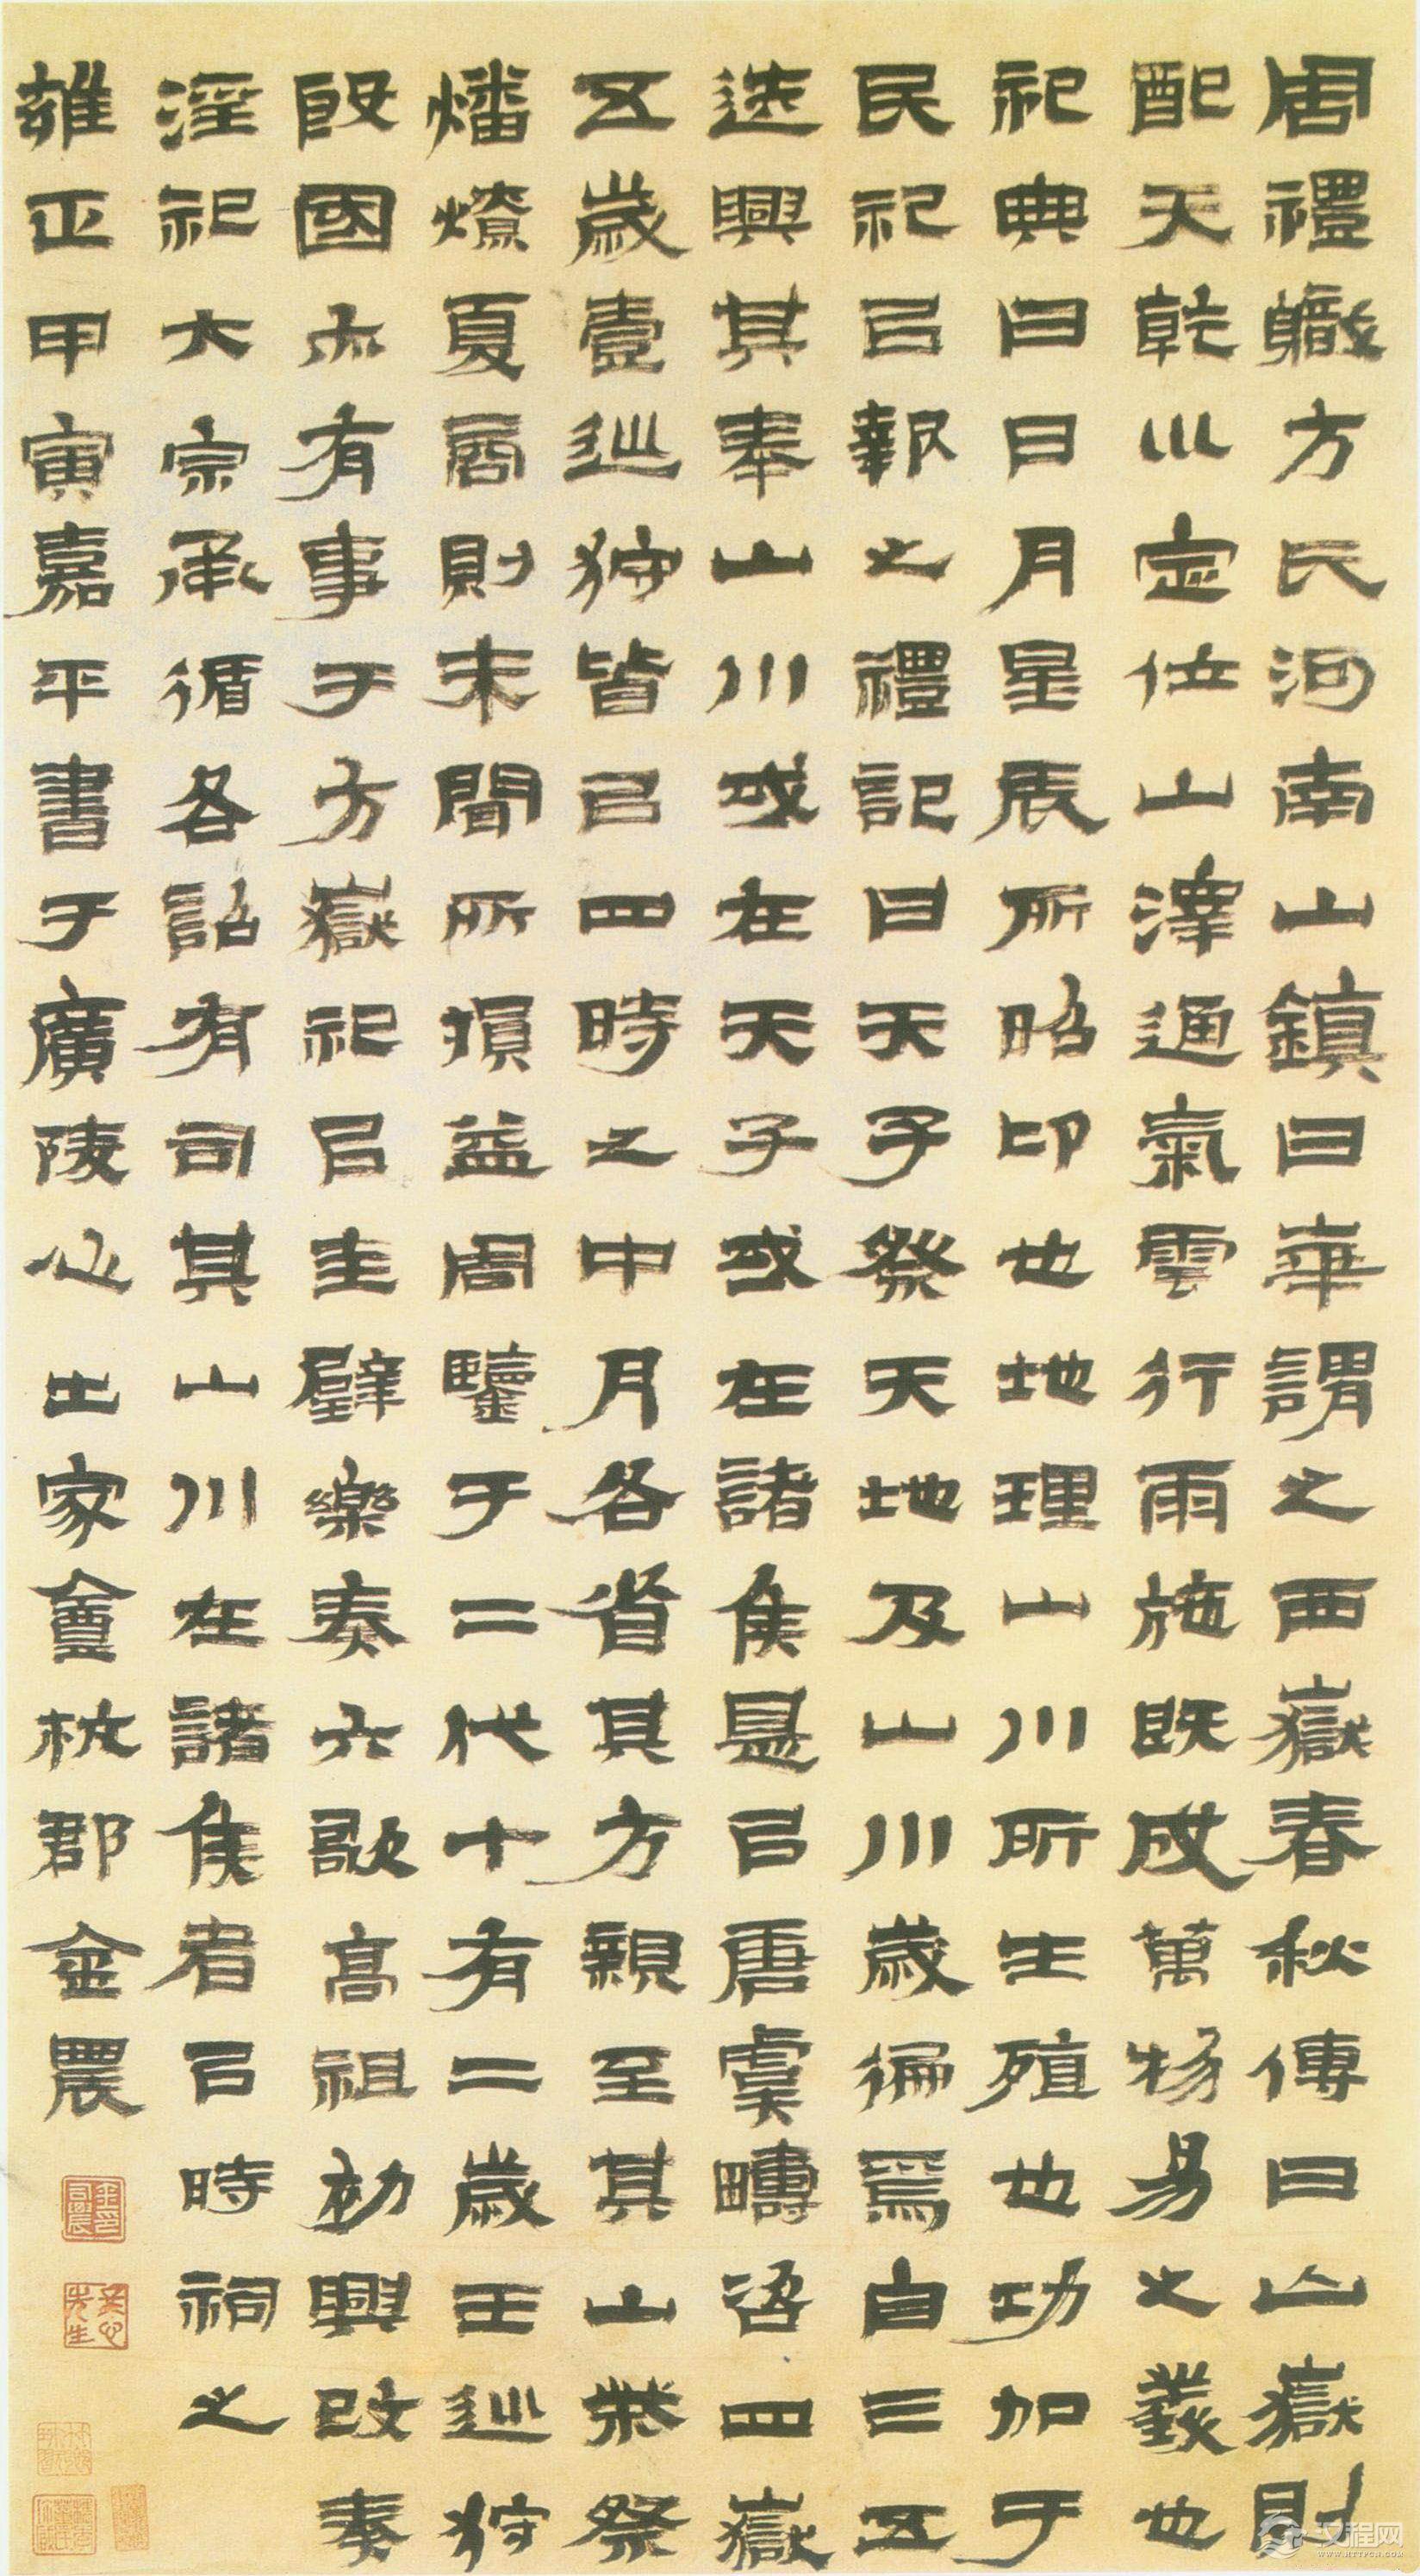 周禮軄方氏河南山鎮曰華謂之西嶽春秋傳曰山嶽則
配天乾巛定位山澤通氣雲行雨施既成萬物易之義也
祀典曰日月星辰所昭卬也地理山川所生殖也功加于
民祀㠯報之禮記曰天子祭天地及山川歲徧焉自三五
迭興其奉山川或在天子或在諸侯是㠯唐虞疇咨四嶽
五歲壹巡狩皆㠯四時之中月各省其方親至其山柴祭
燔燎夏商則未聞所損益周鑒于二代十有二歲王巡狩
殷國亦有事于方嶽祀㠯圭璧樂奏六歌高祖初興改秦
淫祀大宗承循各詔有司其山川在諸侯者㠯時祠之
雍正甲寅嘉平書于廣陵心出家盫杭郡金農
冬心先生
汉程网
WWW.HTTPCN.COM